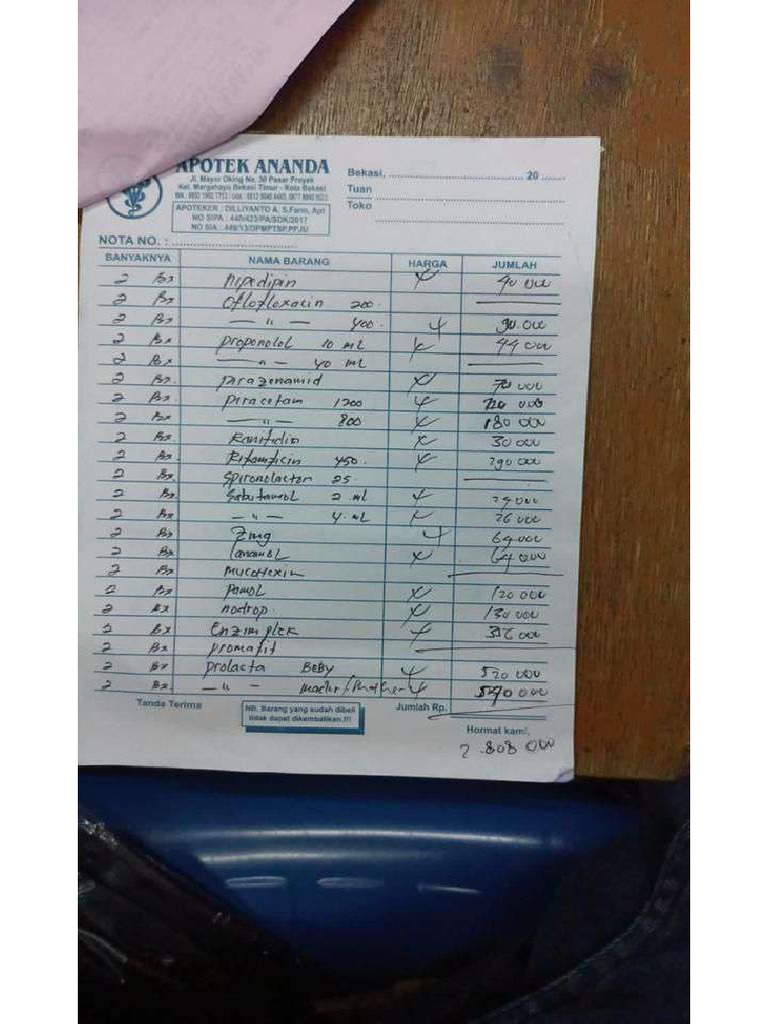 APOTEK ANANDA
Jl. Mayor Oking No. 30 Pasar Proyek
Kel. Margahayu Bekasi Timur - Kota Bekasi
APOTEKER : DILLIYANTO A. S.Farm, Apt
NO SIPA : 440/423/PA/SDK/2017
Bekasi, 20
Tuan
Toko
NOTA NO. :
BANYAKNYA NAMA BARANG HARGA JUMLAH
2 Bx nipedipin 40 000
2 Bx Oflofloxacin 200
2 Bx — " — 400 90.000
2 Bx proponolol 10 mL 44 000
2 Bx — " — 40 mL
2 Bx. pirazonamid 70 000
2 Bx piracetam 1200
2 Bx — " — 800 180 000
2 Bx Ranitidin 30 000
2 Bx Rifamficin 450. 290 000
2 Bx. Spironolacton 25.
2 Bx. Sabutamol 2 mL
2 Bx. — " — 4 mL 26 000
2 Bx. Zing 64 000
2 Bx. 64 000
2 Bx. Mucohexin
2 Bx. pamol 120 000
2 Bx nodrop. 130 000
2 Bx Enzim plek
2 Bx. promafit
2 Bx prolacta BEBY 520 000
2 Bx. — " — /Mother
Tanda Terima
NB. Barang yang sudah dibeli
tidak dapat dikembalikan.!!!
Jumlah Rp.
Hormat kami,
2.808 000